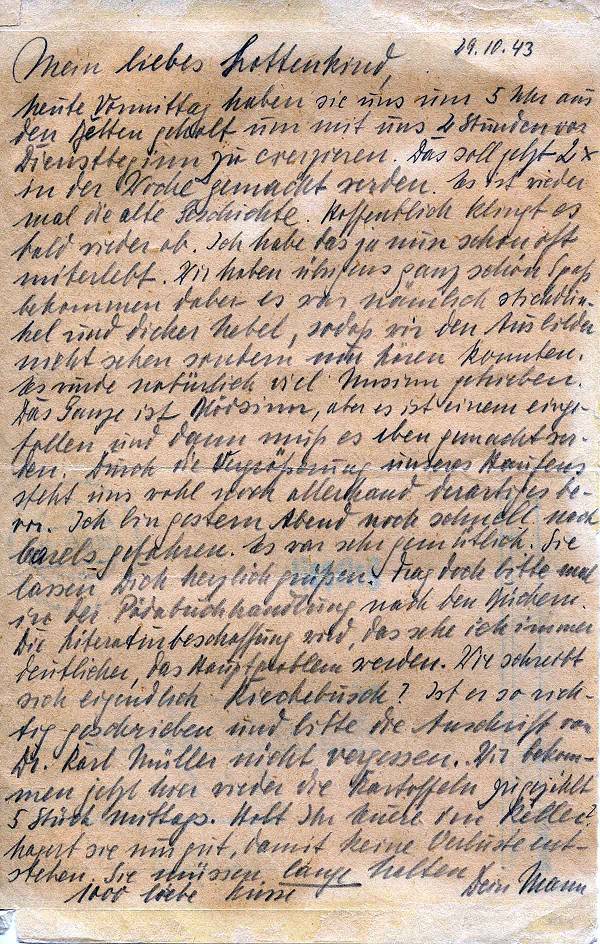 29.10.43
Mein liebes Lottenkind,
heute Vormittag haben sie uns um 5 Uhr aus
den Zelten geholt um mit uns 2 Stunden vor
Dienstbeginn zu exerzieren. Das soll jetzt 2x
in der Woche gemacht werden. Es ist wieder
mal die alte Geschichte. Hoffentlich klingt es
bald wieder ab. Ich habe das ja nun schon oft
miterlebt. Wir haben übrigens ganz schön Spaß
bekommen dabei es war nämlich stichdun-
kel und dicker Nebel, sodaß wir den Ausbilder
nicht sehen sondern nur hören konnten.
Es wurde natürlich viel Unsinn getrieben.
Das Ganze ist Blödsinn, aber es ist einem einge-
fallen und dann muß es eben gemacht wer-
den. Durch die Vergrößerung unseres Haufens
steht uns wohl noch allerhand derartiges be-
vor. Ich bin gestern Abend noch schnell nach
gefahren. Es war sehr gemütlich. Sie
lassen Dich herzlich grüßen. Frag doch bitte mal
in der nach den Büchern.
Die Literaturbeschaffung wird, das sehe ich immer
deutlicher, das Hauptproblem werden. Wie schreibt
sich eigendlich Kirchebusch? Ist es so rich-
tig geschrieben und bitte die Anschrift von
Dr. Karl Müller nicht vergessen. Wir bekom-
men jetzt hier wieder die Kartoffeln zugezählt
5 Stück mittags. Holt Ihr Eure den Keller?
nur gut, damit keine Verluste ent-
stehen. Sie müssen lange halten.
1000 liebe Küsse Dein Mann